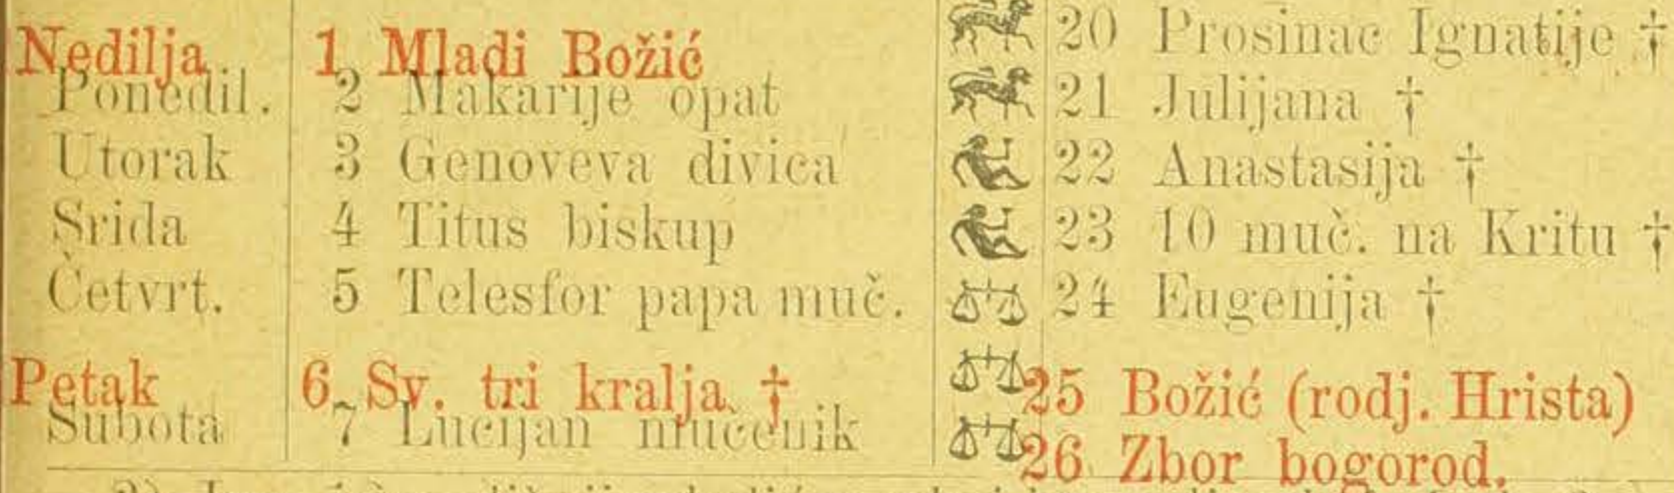 Nedilja 1 Mladi Božić 20 Prosinac Ignatije †
Ponedil. 2 Makarije opat 21 Julijana †
Utorak 3 Genoveva divica 22 Anastasija †
Srida 4 Titus biskup 23 10 muč. na Kritu †
Četvrt. 5 Telesfor papa muč. 24 Eugenija †
Petak 6 Sv. tri kralja † 25 Božić (rodj. Hrista)
Subota 7 Lucijan mučenik 26 Zbor bogorod.